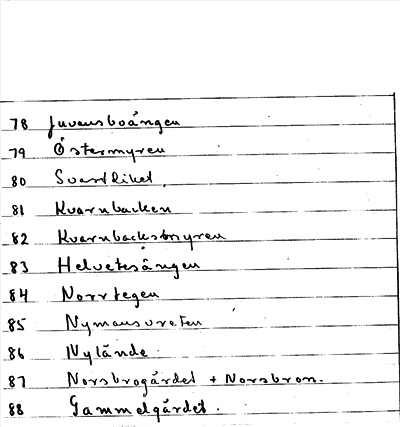 78 Juvansboängen
79 Östermyren
80 Svartdiket.
81 Kvarnbacken
82 Kvarnbacksmyren
83 Helvetesängen
84 Norrtegen
85 Nymansvreten
86 Nylände
87 Norsbrogärdet + Norsbron.
88 Gammelgärdet.